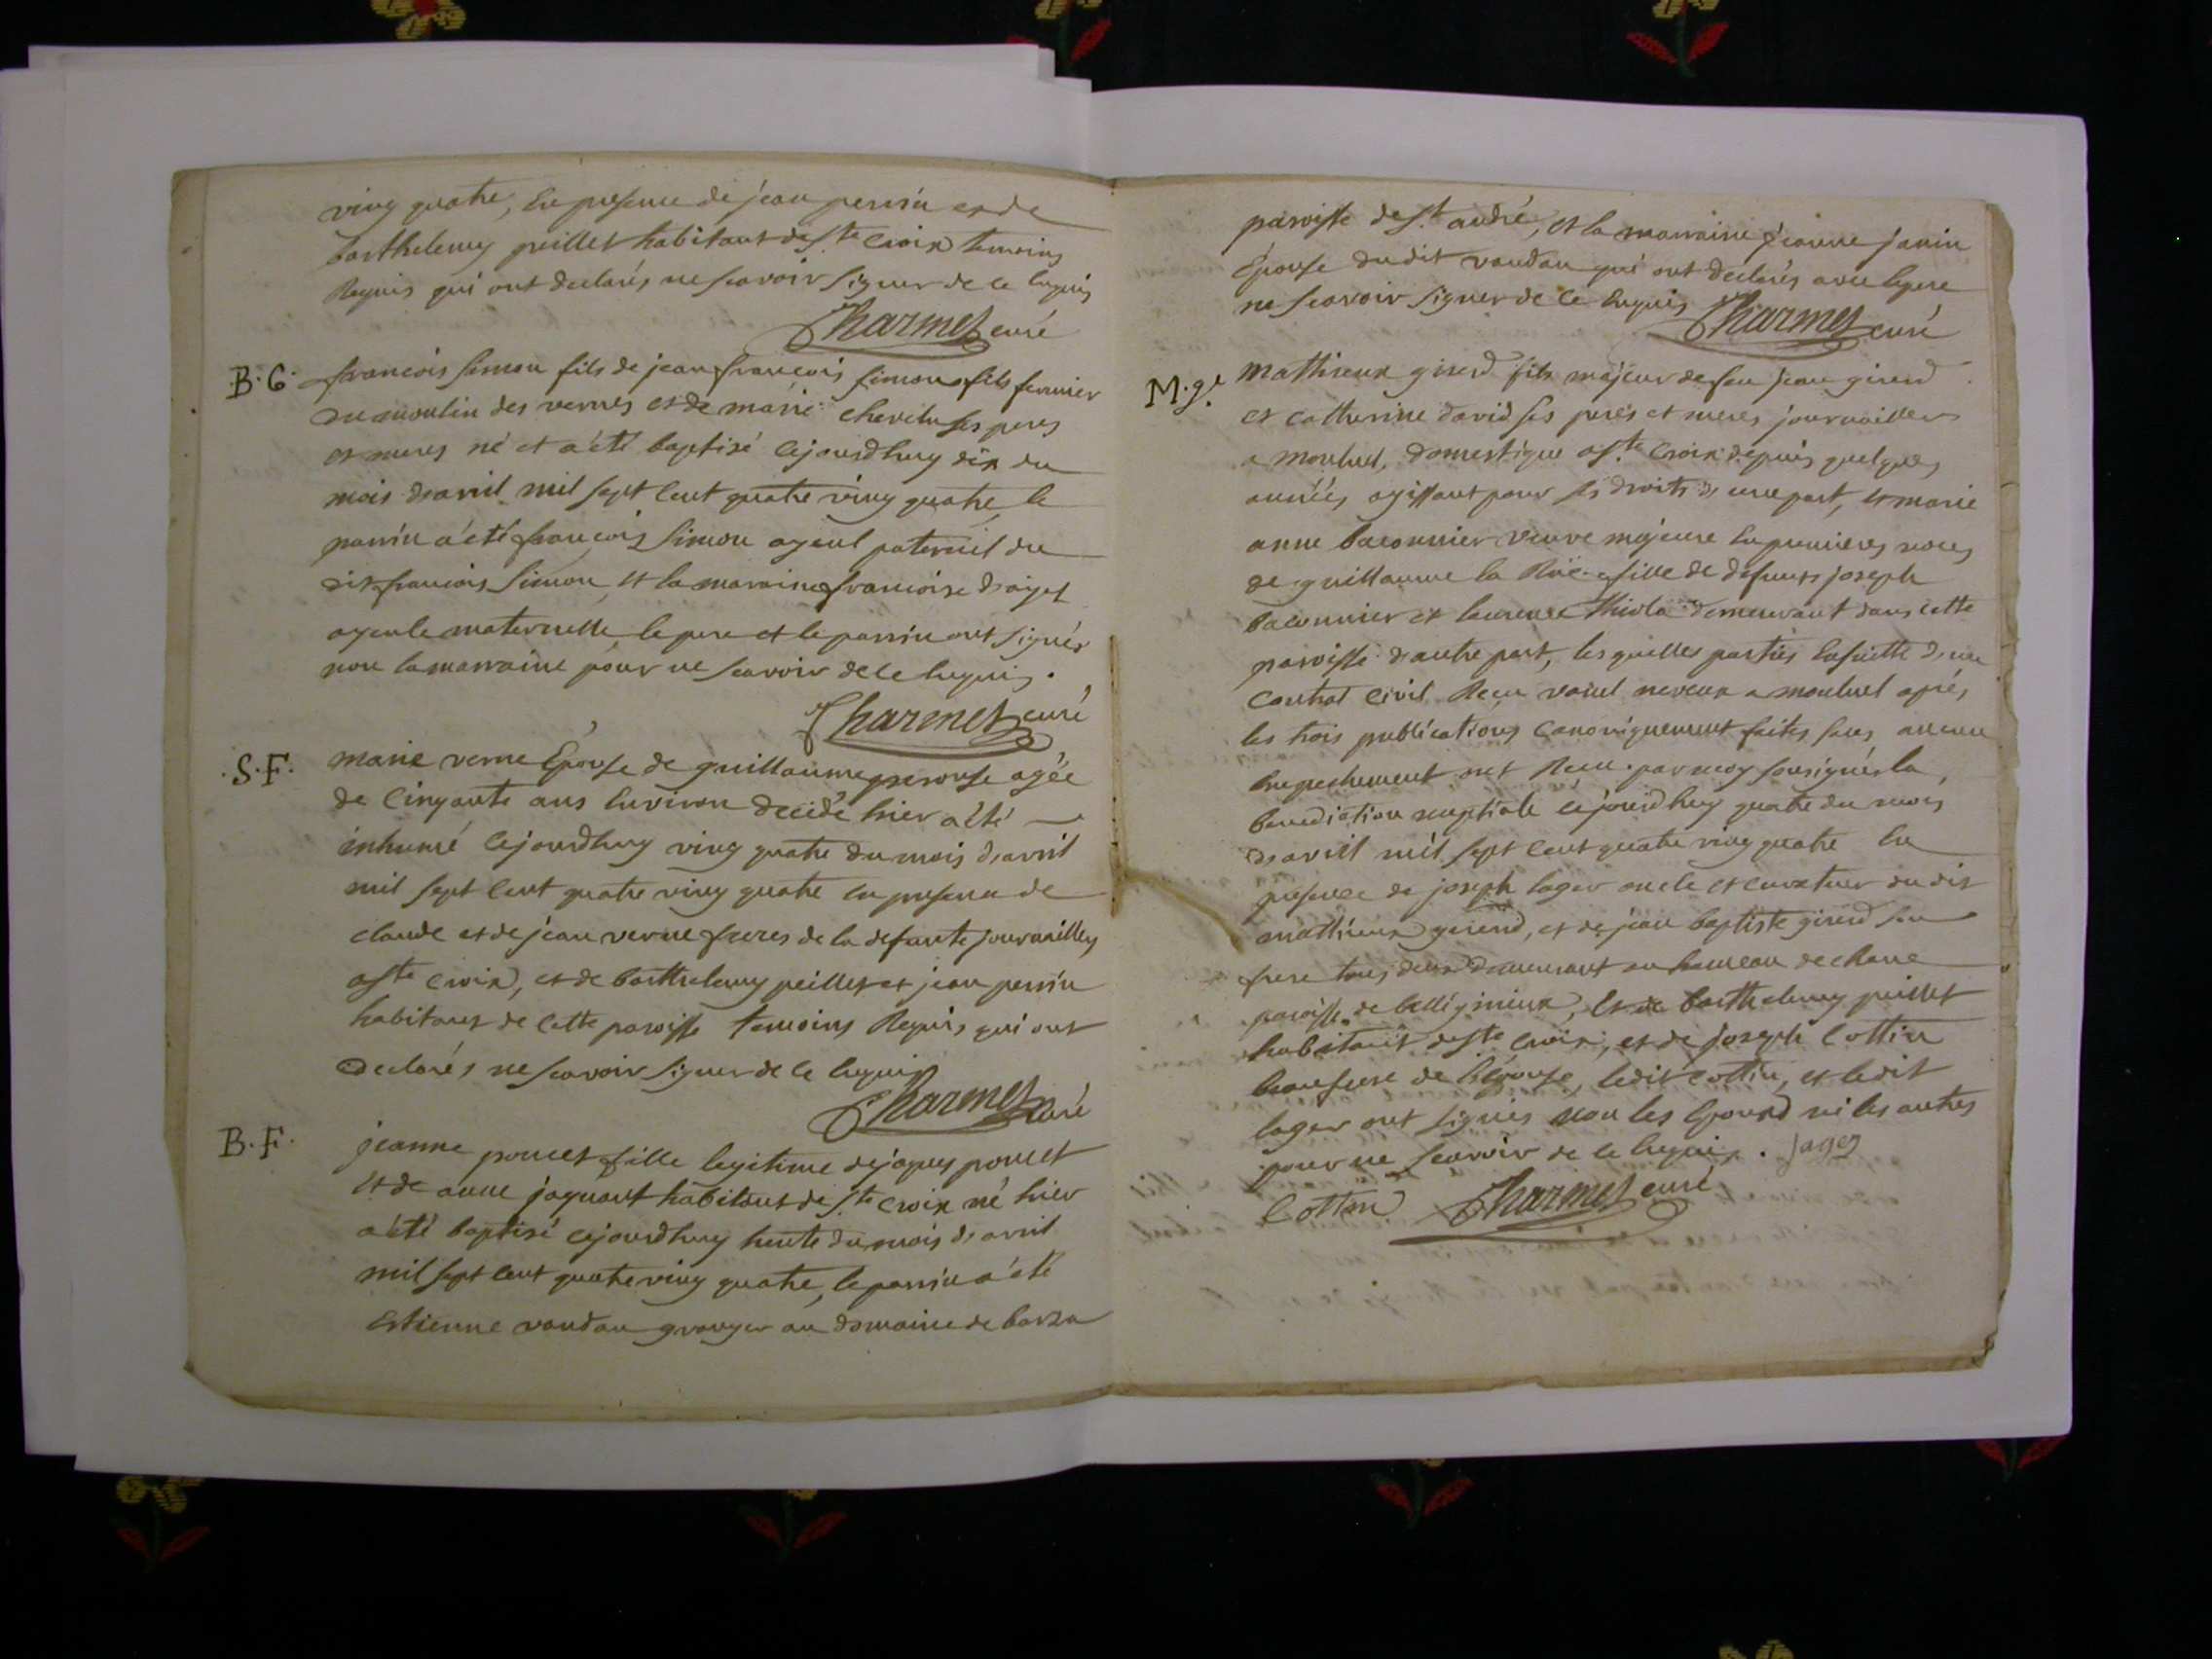 ving quatre, En presence de jean perrin et de
barthelemy peillet habitant de Ste Croix temoins
Requis qui ont declarés ne scavoir signer de ce Enquis
Charmet curé
B. G. francois simon fils de jean francois simon fils fermier
du moulin des vernes et de marie chevelu ses peres
et meres né et a été baptisé cejourdhuy dix du
mois d'avril mil sept cent quatre ving quatre, le
parrin a été francois simon ayeul paternel du
dit francois simon, et la maraine francoise
ayeule maternelle, le pere et le parrin ont signés
non la marraine pour ne scavoir de ce Enquis.
Charmet curé
S. F. marie verne Epouse de guillaume perouse agée
de Cinquante ans Environ decidé hier a été
inhumé Cejourdhuy ving quatre du mois d'avril
mil sept cent quatre ving quatre en presence de
claude et de jean verne freres de la defunte journailley
a Ste Croix, et de barthelemy peillet et jean perrin
habitans de Cette paroisse temoins Requis, qui ont
declarés ne scavoir signer de ce Enquis
Charmet Curé
B. F. jeanne poncet fille legitime de jaques poncet
et de anne jaquant habitant de Ste Croix né hier
a été baptisé cejourdhuy trente du mois d'avril
mil sept cent quatre ving quatre, le parrin a été
Estienne vaudan granger au domaine de barza
paroisse de St. andré, et la marraine jeanne janin
Epouse dudit vaudan qui ont declarés avec le pere
ne scavoir signer de ce Enquis Charmet curé
M. ge Mathieux girerd fils majeur de feu jean girerd
et catherine david ses peres et meres journaillers
a monluel, domestique a Ste Croix depuis quelques
années, agissant pour ses droits d'une part, et marie
anne baconnier veuve majeure En premieres noces
de guillaume la Rue fille de defunts joseph
baconnier et laurence thiola demeurant dans cette
paroisse d'autre part, les quelles parties Ensuitte d'un
Contrat Civil Reçu neveux a monluel aprés
les trois publications Canoniquement faites sans aucun
Empechement ont Recu par moy sousignés la
benediction nuptiale cejourdhuy quatre du mois
d'avril mil sept cent quatre ving quatre En
presence de joseph lager oncle et curateur dudit
mathieux girerd, et de jean baptiste girerd son
frere tous deux demeurant au hameau de chane
paroisse de belligneux, Et de barthelemy peillet
habitant de Ste Croix, et de joseph Cottin
beaufrere de l'Epouse, ledit Cottin, et ledit
lager ont signés non les Epoux ni les autres
pour ne scavoir de ce Enquis. jager
Cottin Charmet curé